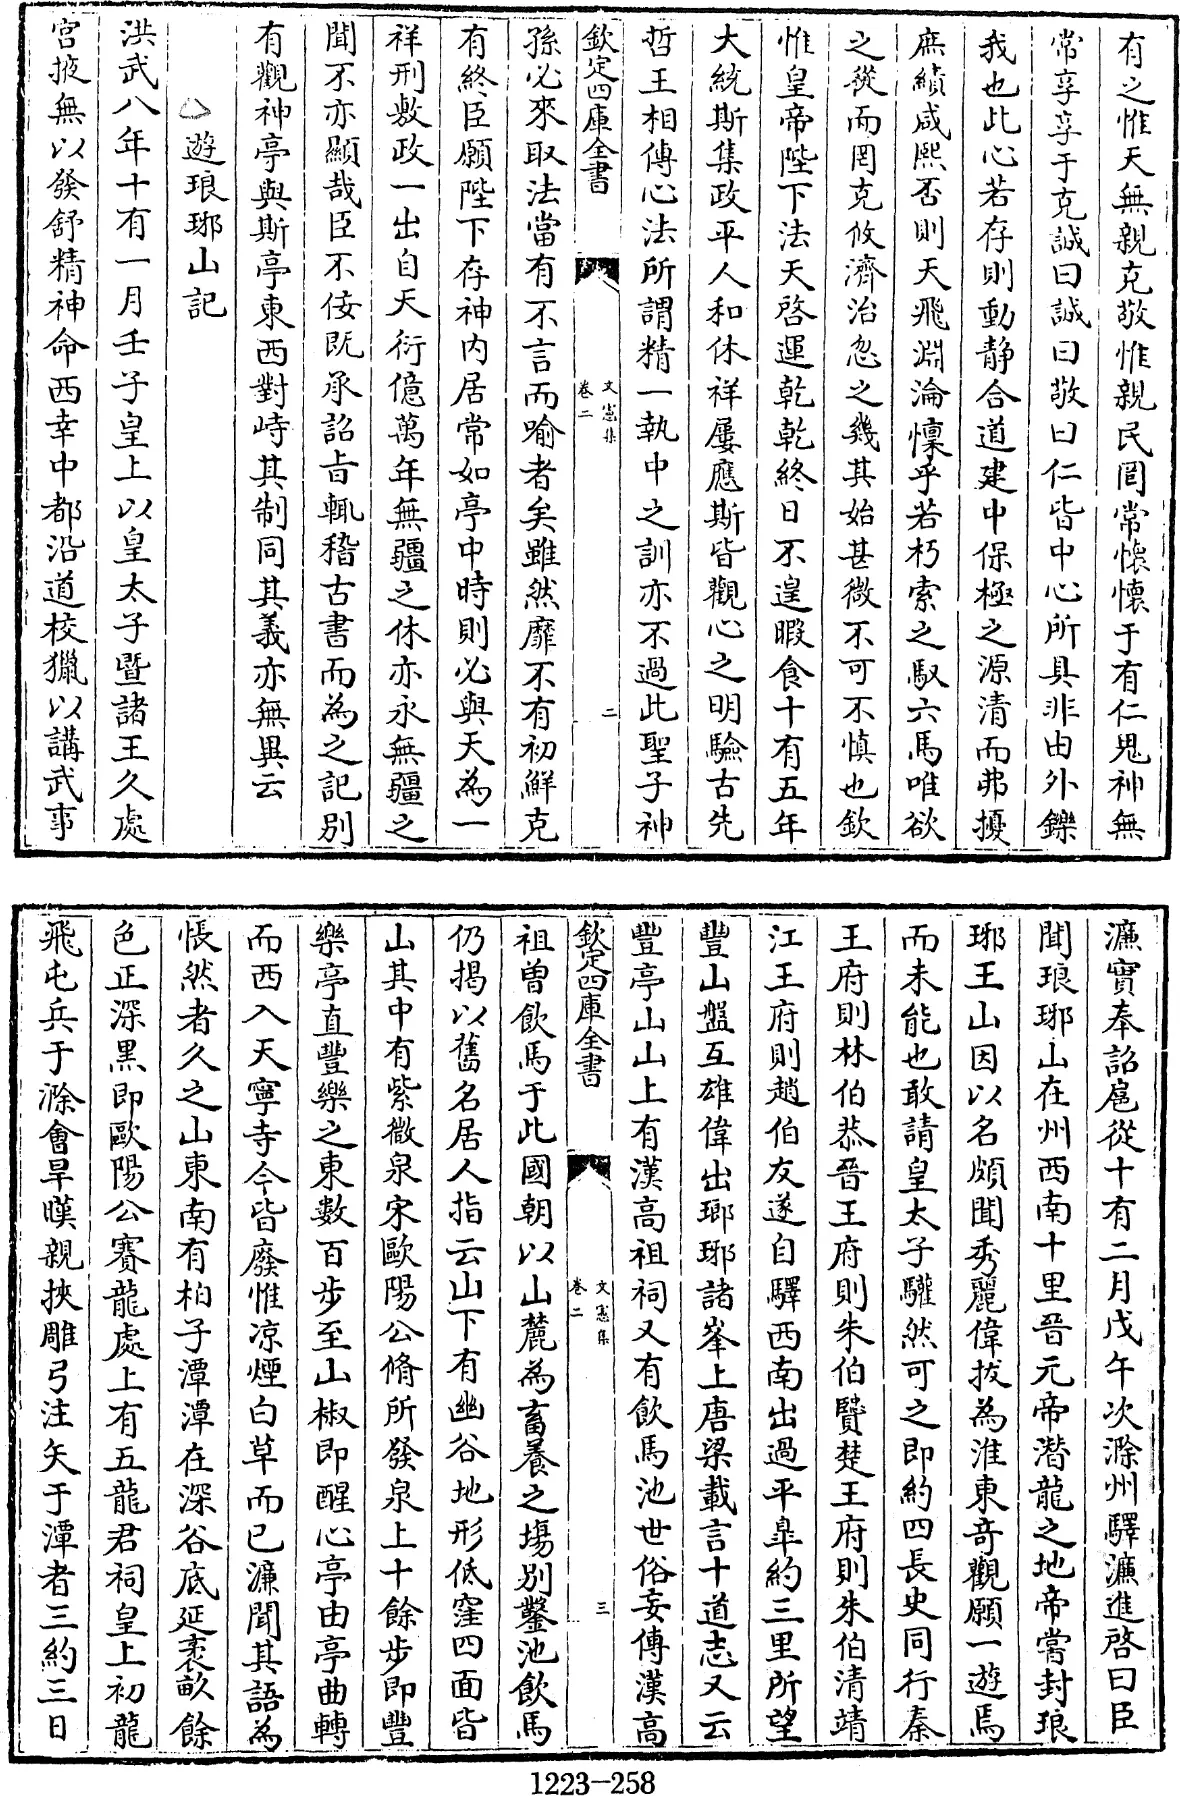 有之惟天無親克敬惟親民罔常懷懷于有仁鬼神無
常享享于克誠曰誠曰敬曰仁皆中心所具非由外鑠
我也此心若存則動静合道建中保極之源清而弗擾
庶績咸熙否則天飛淵淪懔乎若朽索之馭六馬唯欲
之從而罔克攸濟治忽之幾其始甚微不可不慎也欽
惟皇帝陛下法天啓運乾乾終日不遑暇食十有五年
大統斯集政平人和休祥屢應斯皆觀心之明驗古先
哲王相傳心法所謂精一執中之訓亦不過此聖子神
欽定四庫全書
文憲集
卷二
二
孫必來取法當有不言而喻者矣雖然靡不有初鮮克
有終臣願陛下存神内居常如亭中時則必與天為一
祥刑敷政一出自天衍億萬年無疆之休亦永無疆之
聞不亦顯哉臣不佞既承詔㫖輒稽古書而為之記別
有觀神亭與斯亭東西對峙其制同其義亦無異云
遊琅琊山記
洪武八年十有一月壬子皇上以皇太子暨諸王久處
宫掖無以發舒精神命西幸中都沿道校獵以講武事
濂實奉詔扈從十有二月戊午次滁州驛濂進啓曰臣
聞琅琊山在州西南十里晉元帝潛龍之地帝嘗封琅
琊王山因以名頗聞秀麗偉拔為淮東竒觀願一遊焉
而未能也敢請皇太子驩然可之即約四長史同行秦
王府則林伯恭晉王府則朱伯賢楚王府則朱伯清靖
江王府則趙伯友遂自驛西南出過平臯約三里所望
豐山盤互雄偉出瑯琊諸峯上唐梁載言十道志又云
豐亭山山上有漢高祖祠又有飲馬池世俗妄傳漢高
欽定四庫全書
文憲集
卷二
三
祖曽飲馬于此國朝以山麓為畜養之場別鑿池飲馬
仍揭以舊名居人指云山下有幽谷地形低窪四面皆
山其中有紫微泉宋歐陽公脩所發泉上十餘步即豐
樂亭直豐樂之東數百步至山椒即醒心亭由亭曲轉
而西入天寧寺今皆廢惟凉煙白草而已濂聞其語為
悵然者久之山東南有柏子潭潭在深谷底延袤畝餘
色正深黒即歐陽公賽龍處上有五龍君祠皇上初龍
飛屯兵于滁會旱暵親挾雕弓注矢于潭者三約三日
1223-258